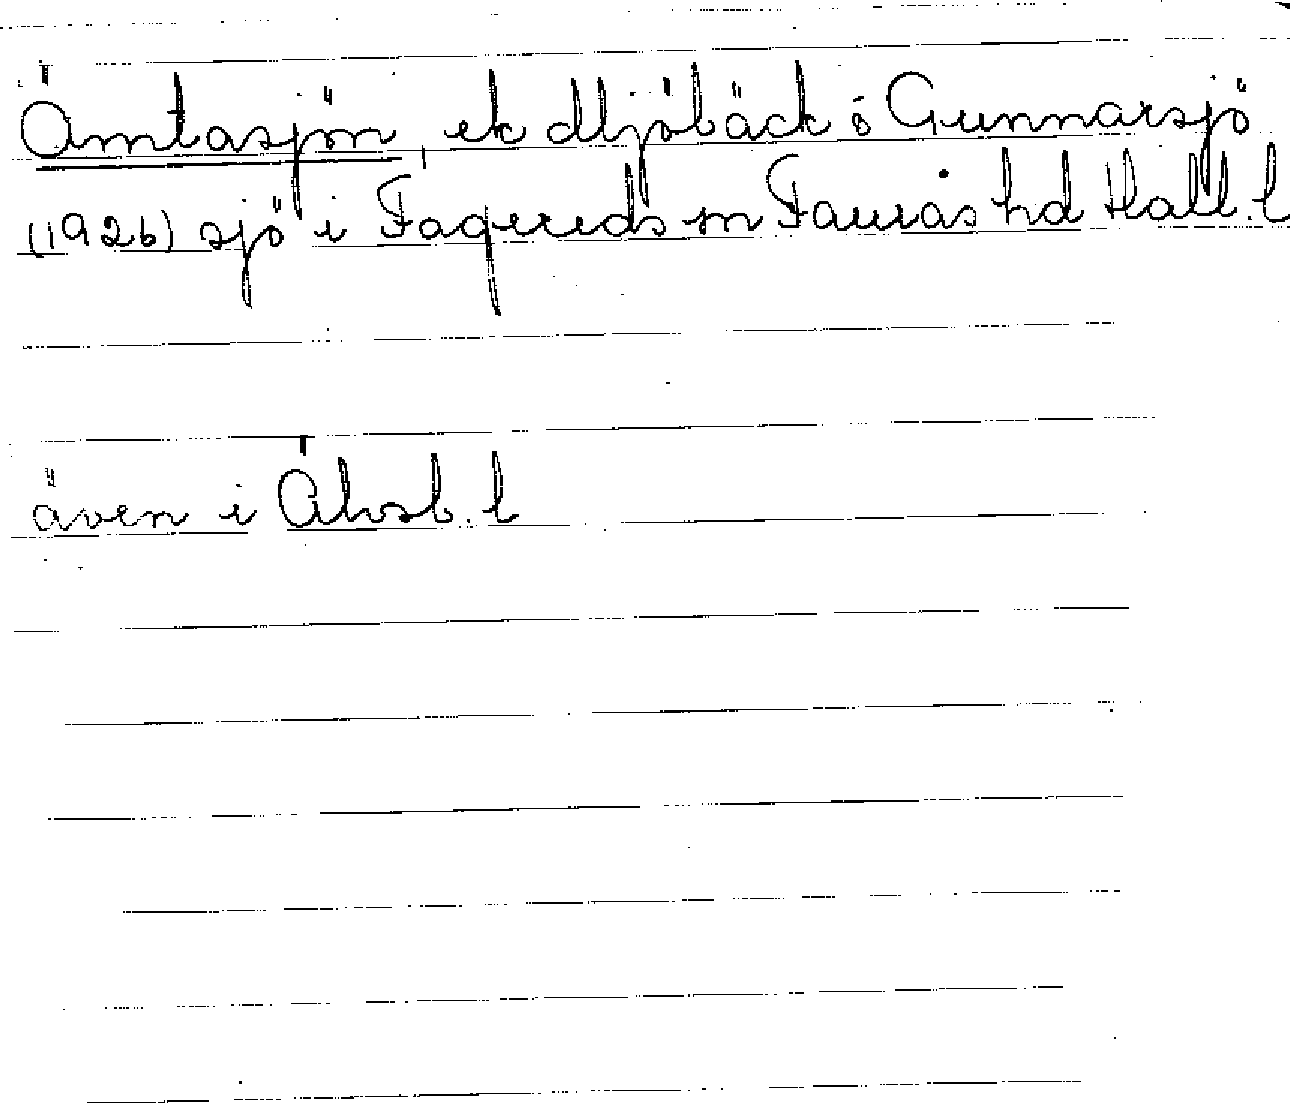 Ämtasjön, ek dljöbäck ö Gunnarsjö
(1926) sjö i Fagereds sn Faurås hd Hall. l
även i Älvsb. l